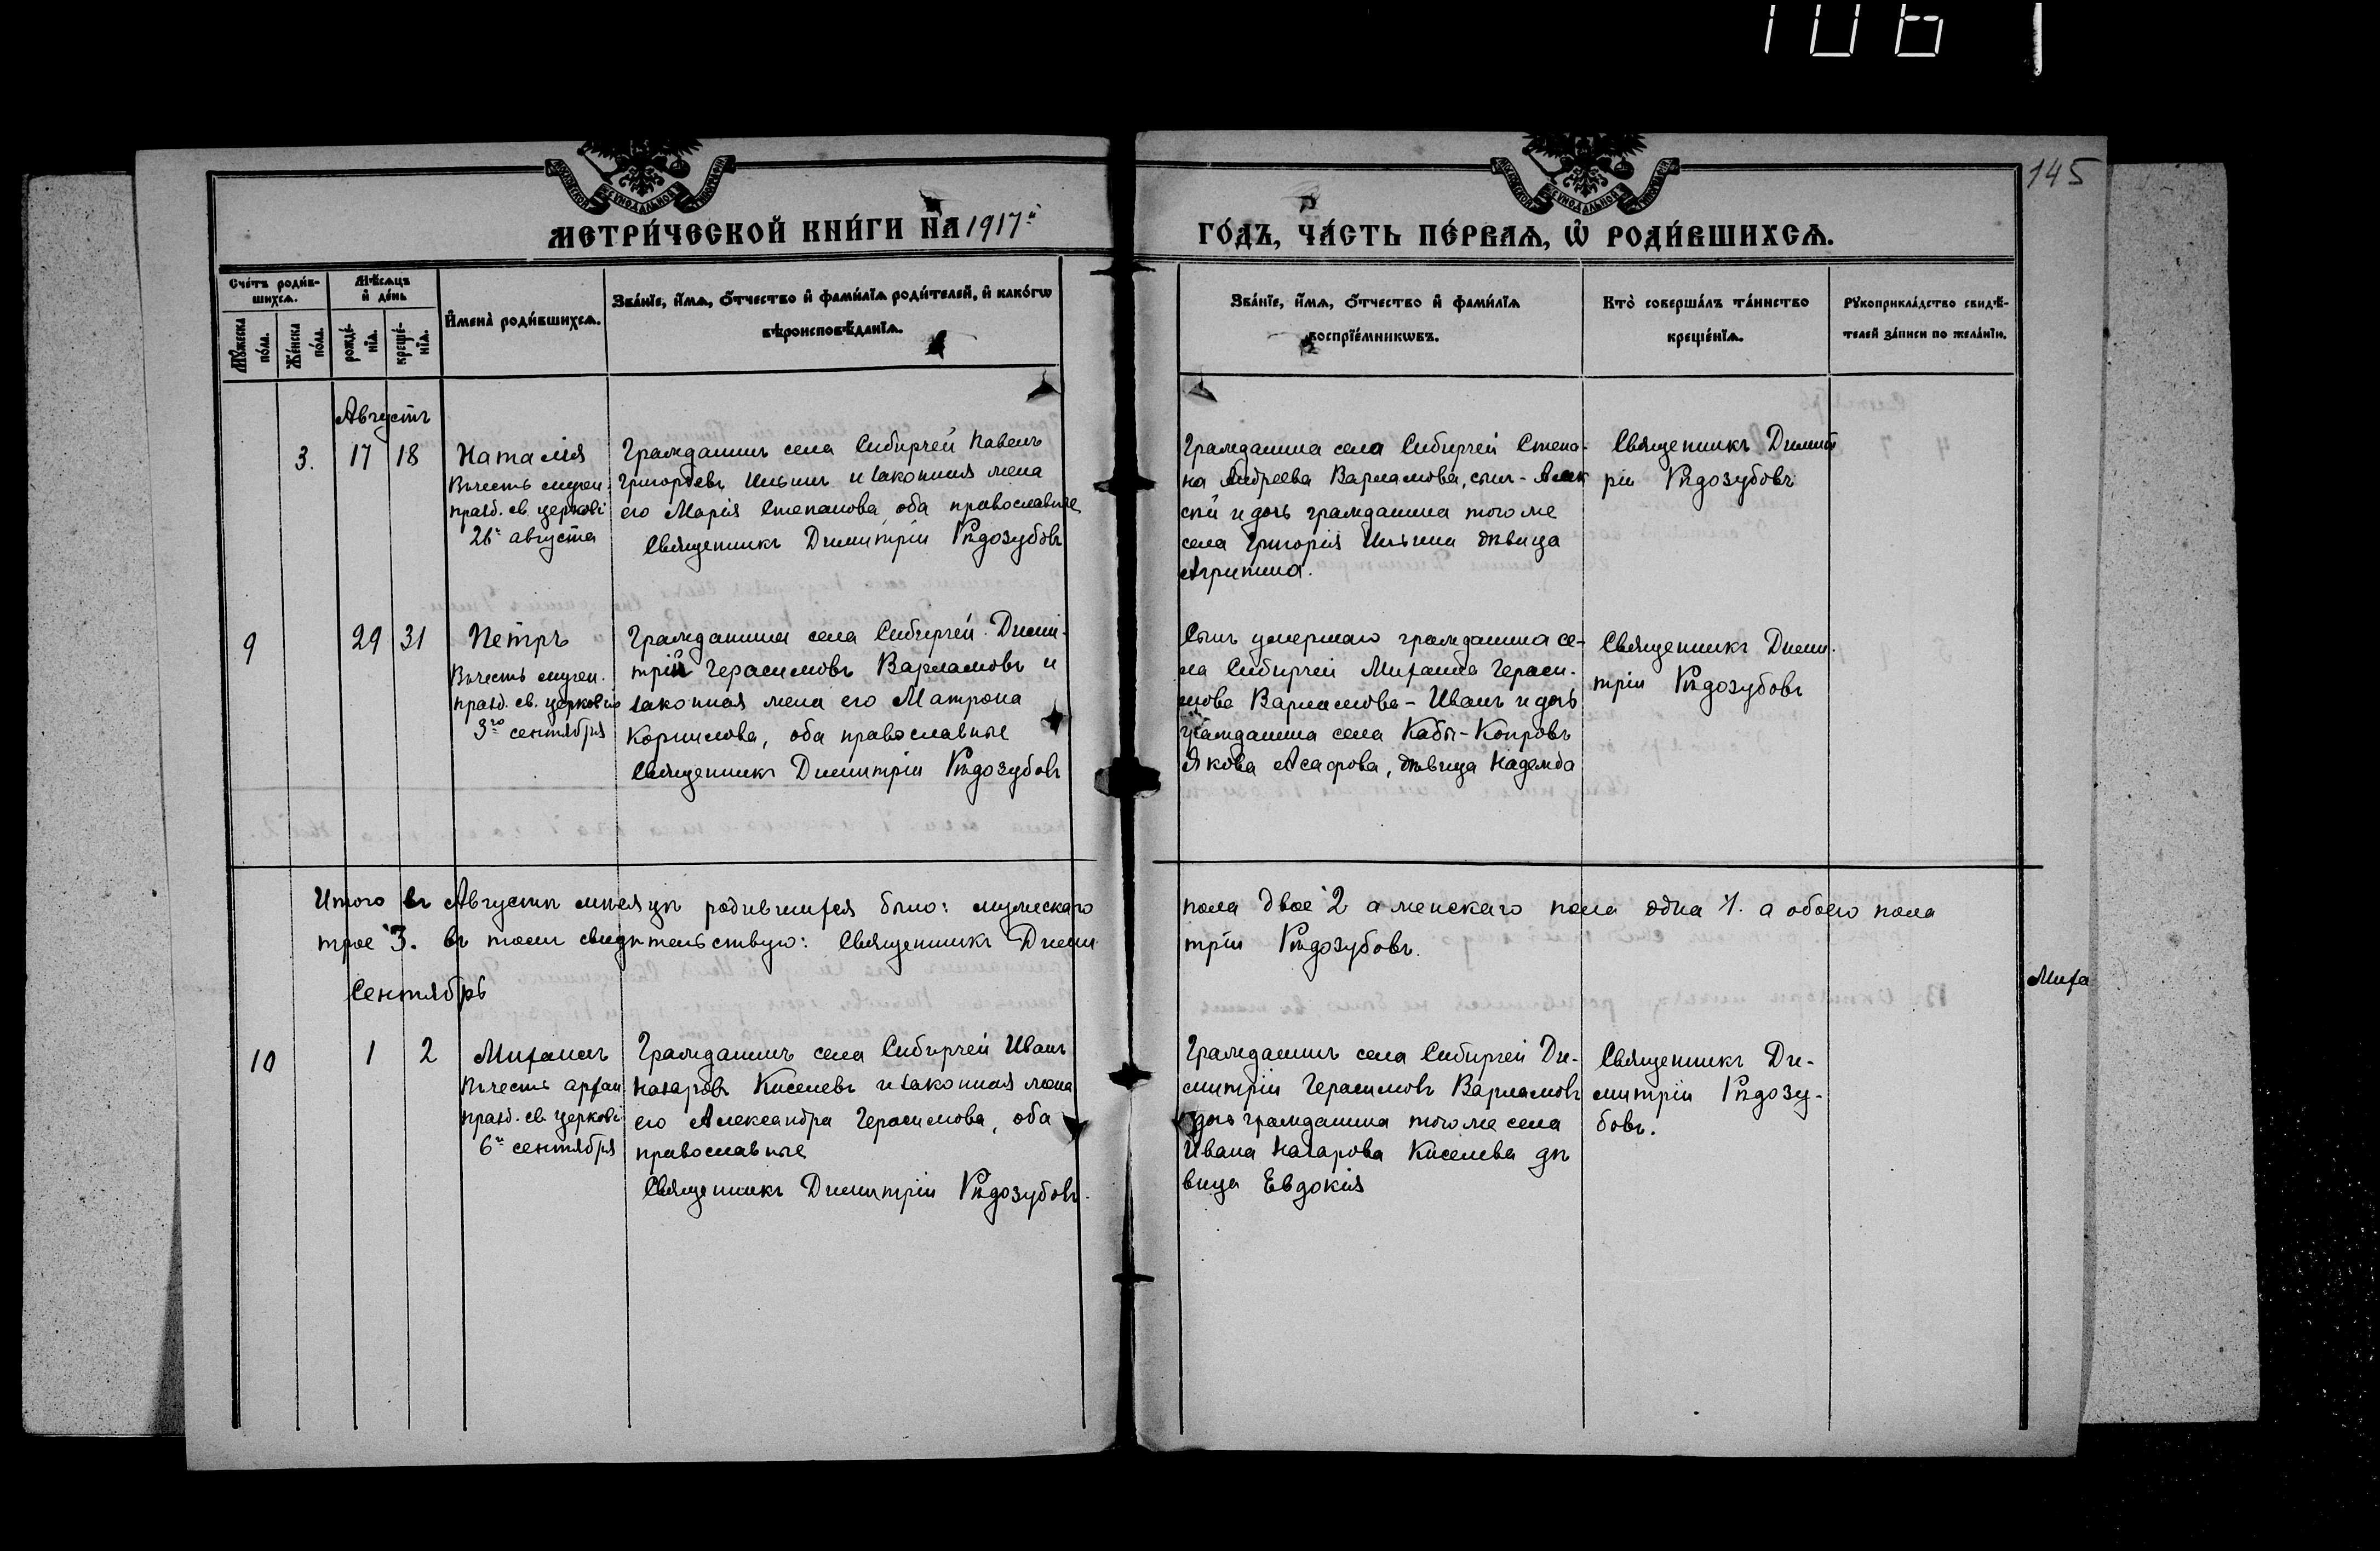 1061
145
МЕТРИ́ЧЕСКОЙ КНИ́ГИ НА 1917й
ГО́ДЪ, ЧА́СТЬ ПЕ́РВАѦ, Ѡ҆ РОДИ́ВШИХСѦ.
Сче́тъ роди́в-
шихсѧ.
Мꙋ́жеска по́ла.
Же́нска по́ла.
Мѣ́сѧцъ
и҆ де́нь
рожде́-
нїѧ.
креще́-
нїѧ.
И҆мена̀ роди́вшихсѧ.
Зва́нїе, и҆́мѧ, ѻ҆́тчество и҆ фами́лїѧ роди́телей, и҆ како́гѡ
вѣроисповѣ́данїѧ.
Зва́нїе, и҆́мѧ, ѻ҆́тчество и҆ фами́лїѧ
воспрїе́мникѡвъ.
Кто̀ соверша́лъ та́инство
креще́нїѧ.
Рꙋкоприкла́дство свидѣ́-
телей за́писи по жела́нїю.
Августъ
3.
17
18
Наталія
Въ честь мучен.
празд. св. церковію
26го августа
Гражданинъ села Сибирчей Павелъ
Григорьевъ Ильинъ и законная жена
его Марія Степанова оба православные
Священникъ Димитрій Рѣдозубовъ
Гражданина села Сибирчей Степа-
на Андреева Варламова, сынъ - Алек
сѣй и дочь гражданина того же
села Григорія Ильина дѣвица
Агрипина.
Священникъ Димит
рій Рѣдозубовъ
9
29
31
Петръ
Въ честь мучен.
празд. св. церковію
3го сентября
Гражданинъ села Сибирчей Дими-
трій Герасимовъ Варламовъ и
законная жена его Матрона
Корнилова, оба православные
Священникъ Димитрій Рѣдозубовъ
Сынъ умершаго гражданина се-
ла Сибирчей Михаила Гераси-
мова Варламова - Иванъ и дочь
гражданина села Кабы-Копровъ
Якова Асафова, дѣвица Надежда
Священникъ Дими-
трій Рѣдозубовъ
Итого въ Августѣ мѣсяцѣ родившихся было: мужескаго
пола двое 2 а женскаго пола одна 1. а обоего пола
трое 3. въ томъ свидѣтельствую: Священникъ Дими
трій Рѣдозубовъ.
Сентябрь
Миха
10
1
2
Михаилъ
Въ честь архан
празд. св. церковію
6го сентября
Гражданинъ села Сибирчей Иванъ
Назаровъ Киселевъ и законная жена
его Александра Герасимова, оба
православные
Священникъ Димитрій Рѣдозубовъ.
Гражданинъ села Сибирчей Ди-
митрій Герасимовъ Варламовъ
дочь гражданина того же села
Ивана Назарова Киселева дѣ
вица Евдокія
Священникъ Ди-
митрій Рѣдозу-
бовъ.